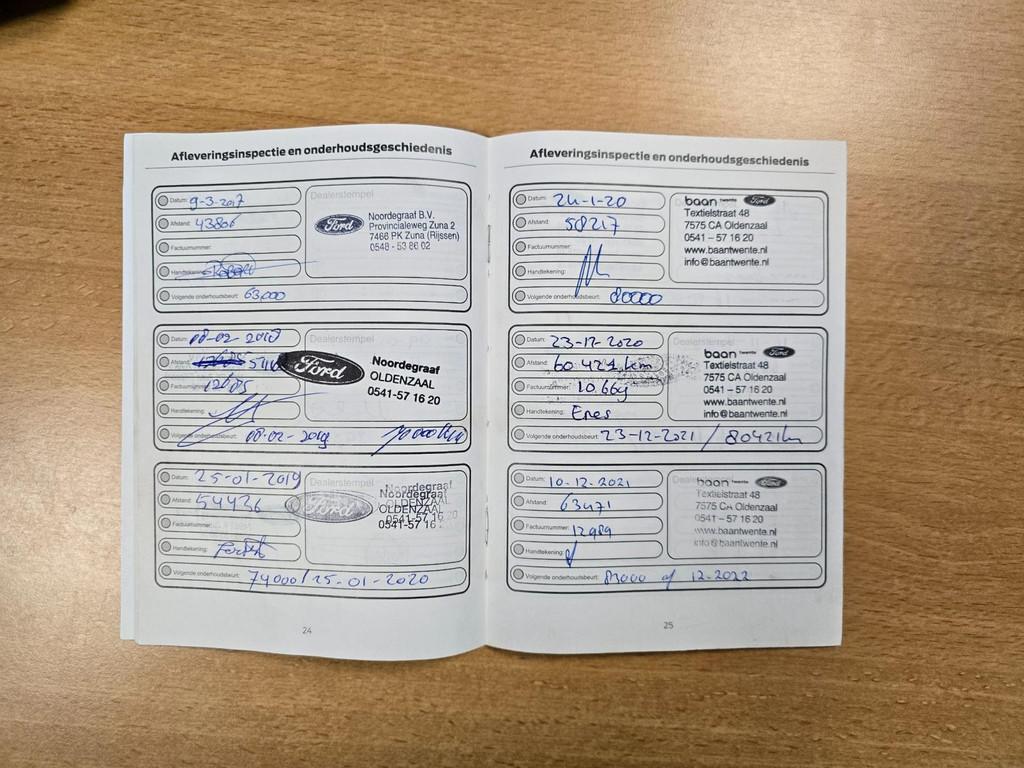 Afleveringsinspectie en onderhoudsgeschiedenis
Datum: 9-3-2017
Afstand: 43806
Factuurnummer:
Handtekening:
Volgende onderhoudsbeurt: 63000
Dealerstempel
Ford
Noordegraaf B.V.
Provincialeweg Zuna 2
7466 PK Zuna (Rijssen)
0548 - 53 86 02
Datum: 08-02-2018
Afstand:
Factuurnummer:
Handtekening:
Volgende onderhoudsbeurt: 08-02-2019
Dealerstempel
Ford
Noordegraaf
OLDENZAAL
0541-57 16 20
Datum: 25-01-2019
Afstand: 54436
Factuurnummer:
Handtekening:
Volgende onderhoudsbeurt: 74000 / 25-01-2020
Dealerstempel
Ford
Noordegraaf
OLDENZAAL
0541-57 16 20
24
Afleveringsinspectie en onderhoudsgeschiedenis
Datum: 24-1-20
Afstand: 58217
Factuurnummer:
Handtekening:
Volgende onderhoudsbeurt: 80000
baan twente Ford
Textielstraat 48
7575 CA Oldenzaal
0541 – 57 16 20
www.baantwente.nl
info@baantwente.nl
Datum: 23-12-2020
Afstand: 60.421 km
Factuurnummer: 10.664
Handtekening: Enes
Volgende onderhoudsbeurt: 23-12-2021 / 80421km
baan twente Ford
Textielstraat 48
7575 CA Oldenzaal
0541 – 57 16 20
www.baantwente.nl
info@baantwente.nl
Datum: 10-12-2021
Afstand: 63471
Factuurnummer: 12989
Handtekening:
Volgende onderhoudsbeurt: 83000 of 12-2022
baan twente Ford
Textielstraat 48
7575 CA Oldenzaal
0541 – 57 16 20
www.baantwente.nl
info@baantwente.nl
25